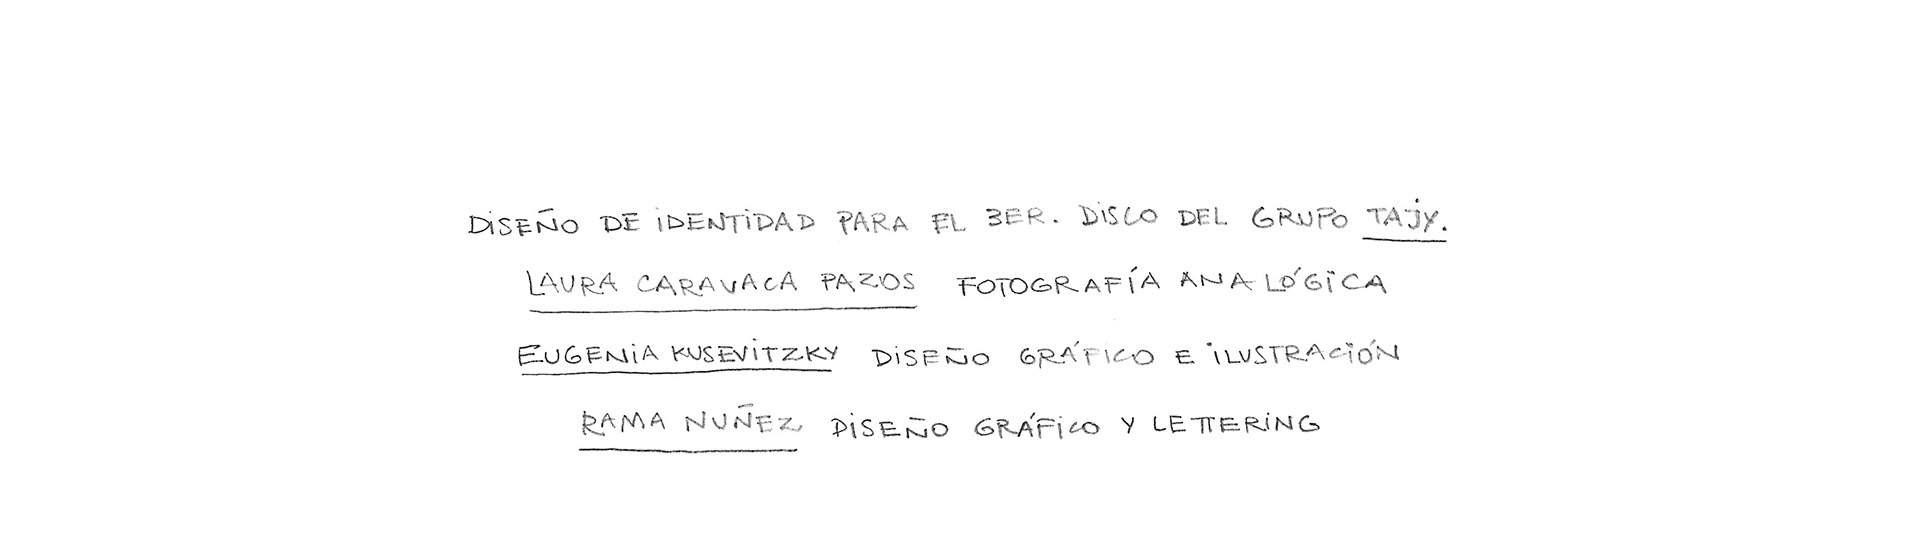 DISEÑO DE IDENTIDAD PARA EL 3ER. DISCO DEL GRUPO TAJY.
LAURA CARAVACA PAZOS FOTOGRAFÍA ANALÓGICA
EUGENIA KUSEVITZKY DISEÑO GRÁFICO E ILUSTRACIÓN
RAMA NUÑEZ DISEÑO GRÁFICO Y LETTERING